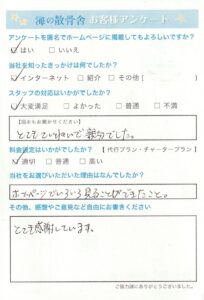 海の散骨舎 お客様アンケート
アンケートを匿名でホームページに掲載してもよろしいですか?
☑はい □いいえ
当社を知ったきっかけは何でしたか?
☑インターネット □紹介 □その他( )
スタッフの対応はいかがでしたか?
☑大変満足 □よかった □普通 □不満
【理由もお聞かせください】
とてもていねいで親切でした。
料金設定はいかがでしたか? 【代行プラン・チャータープラン】
☑適切 □普通 □高い
当社をお選びいただいた理由はなんでしたか?
ホームページでいろいろ見ることができたこと。
その他、感想やご意見など自由にお書きください
とても感謝しています。
ご協力誠にありがとうございました。